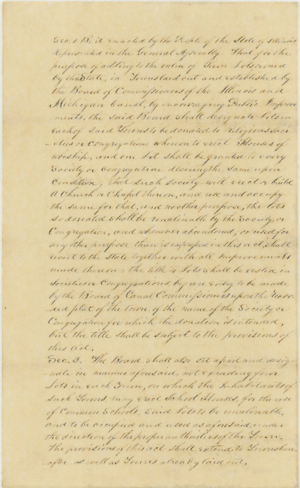 Sec. 1. Be it enacted by the People of the State of Illinois
represented in the General Assembly. That for the
purpose of adding to the value of Town Lots owned
by the State, in Towns laid out and established by
the Board of Commissioners of the Illinois and
Michigan Canal, by encouraging Public Improve-
ments, the said Board shall designate Lots in
each of said Towns to be donated to religious Soci-
eties or Congregations whereon to erect Houses of
worship, and one Lot shall be granted to every
Society or Congregation desiring the same upon
condition, that such Society will erect or build
a Church or Chapel thereon, and use and occupy
the same for that, and no other purpose, the Lots
so donated shall be inalienable by the Society or
Congregation, and whenever abandoned, or used for
any other purpose than is expressed in this act, shall
revert to the State together with all improvements
made thereon. The title to Lots shall be vested in
Societies or Congregations by an entry to be made
by the Board of Canal Commissioners upon the
ded plat of the town, of the name of the Society or
Congregation for which the donation is intended,
but the title shall be subject to the provisions of
this act.
Sec. 2. The Board shall also set apart and desig-
nate in manner aforesaid,
Lots in each Town, on which the Inhabitants of
such Towns may erect School Houses, for the use
of Common Schools, said Lots to be inalienable,
and to be occupied and used as aforesaid under
the direction of the proper authorities of the Town.
The provisions of this act shall extend to Towns
after as well as Towns already laid out.